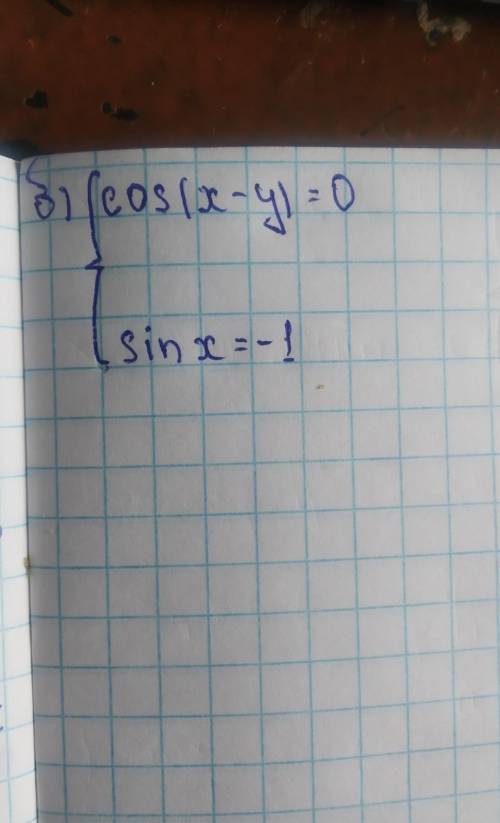 б) { cos(x-y) = 0
sin x = -1